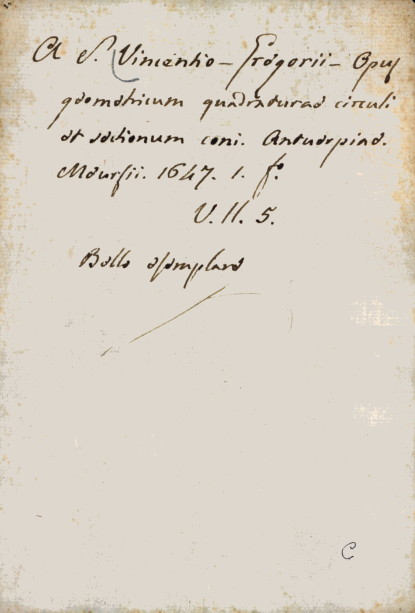 A S. Vincentio - Gregorii - Opus
geometricum quadraturae circuli
et sectionum coni. Antuerpiae.
Meursii. 1647. 1. f.o
V. ll. 5.
Bello esemplare
C